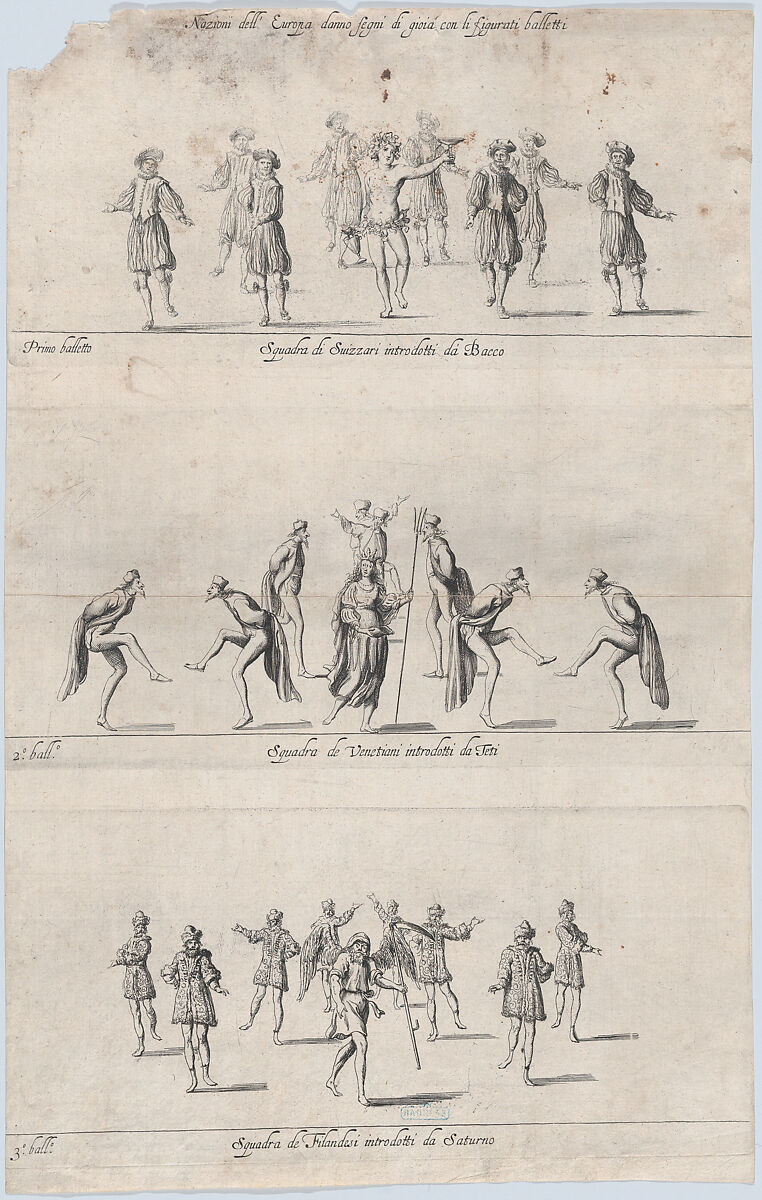 Nazioni dell' Europa danno segni di gioia con li figurati balletti
Primo balletto
Squadra di Suizzari introdotti da Bacco
2.º ball.º
Squadra de Venetiani introdotti da Teti
3.º ball.º
Squadra de Filandesi introdotti da Saturno